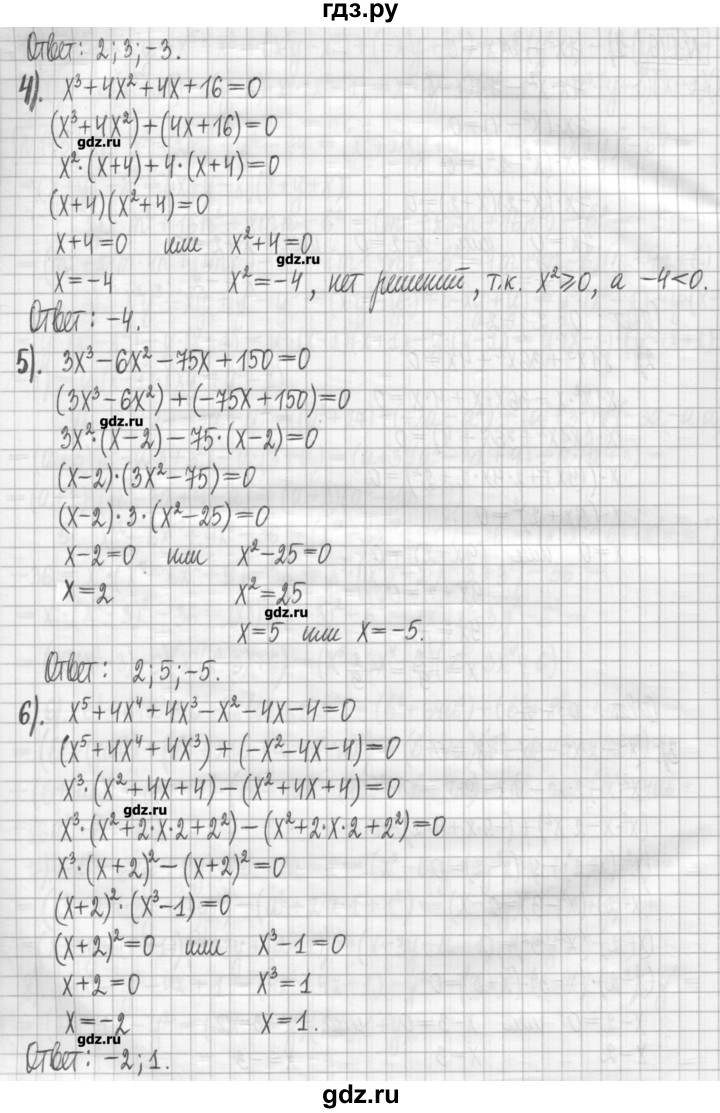 гдз.ру
Ответ: 2; 3; -3.
4). x³+4x²+4x+16=0
(x³+4x²)+(4x+16)=0
gdz.ru
x²·(x+4)+4·(x+4)=0
(x+4)(x²+4)=0
x+4=0 или x²+4=0
gdz.ru
x=-4 x²=-4, нет решений, т.к. x²⩾0, а -4<0.
Ответ: -4.
5). 3x³-6x²-75x+150=0
(3x³-6x²)+(-75x+150)=0
gdz.ru
3x²·(x-2)-75·(x-2)=0
(x-2)·(3x²-75)=0
(x-2)·3·(x²-25)=0
x-2=0 или x²-25=0
x=2 x²=25
gdz.ru
x=5 или x=-5.
Ответ: 2; 5; -5.
6). x⁵+4x⁴+4x³-x²-4x-4=0
(x⁵+4x⁴+4x³)+(-x²-4x-4)=0
x³·(x²+4x+4)-(x²+4x+4)=0
gdz.ru
x³·(x²+2·x·2+2²)-(x²+2·x·2+2²)=0
x³·(x+2)²-(x+2)²=0
(x+2)²·(x³-1)=0
(x+2)²=0 или x³-1=0
x+2=0 x³=1
x=-2 x=1.
gdz.ru
Ответ: -2; 1.
gdz.ru